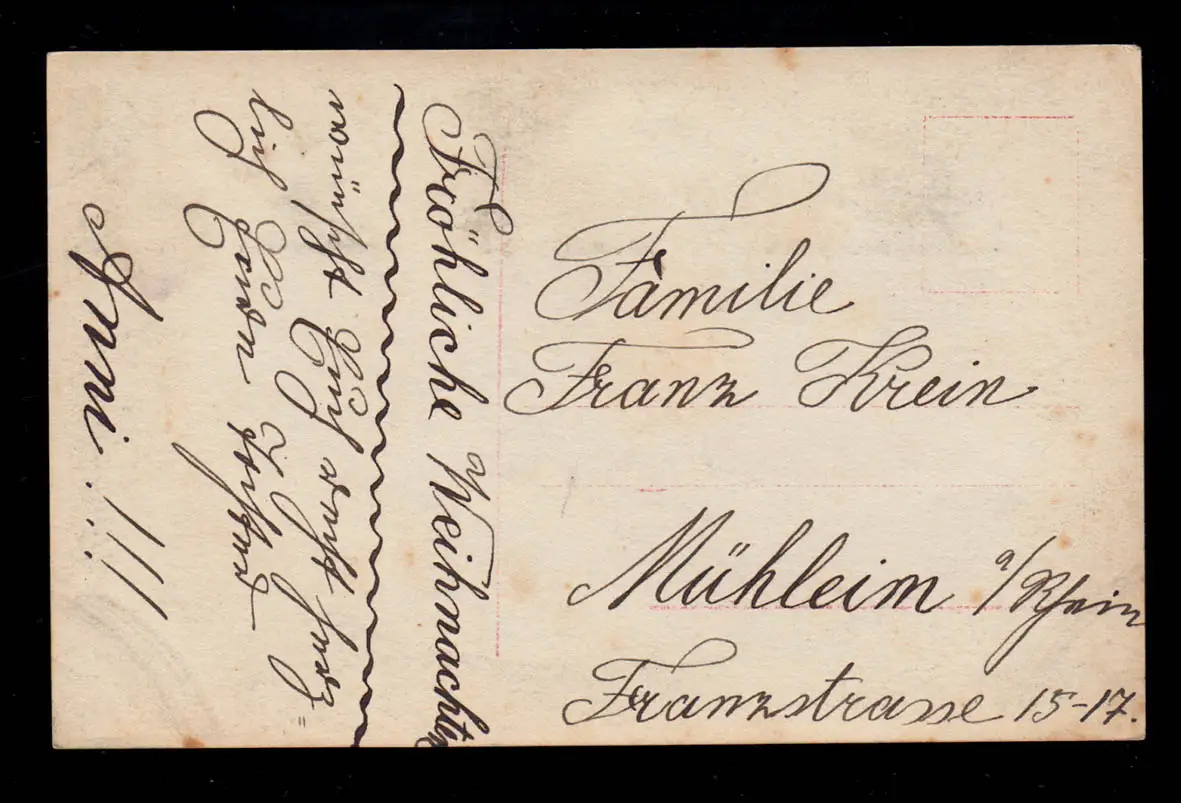 Fröhliche Weihnachten
wünscht Euch recht herz=
lich
Anni.!!!
Familie
Franz Krein
Mühleim a/Rhein
Franzstrasse 15-17.